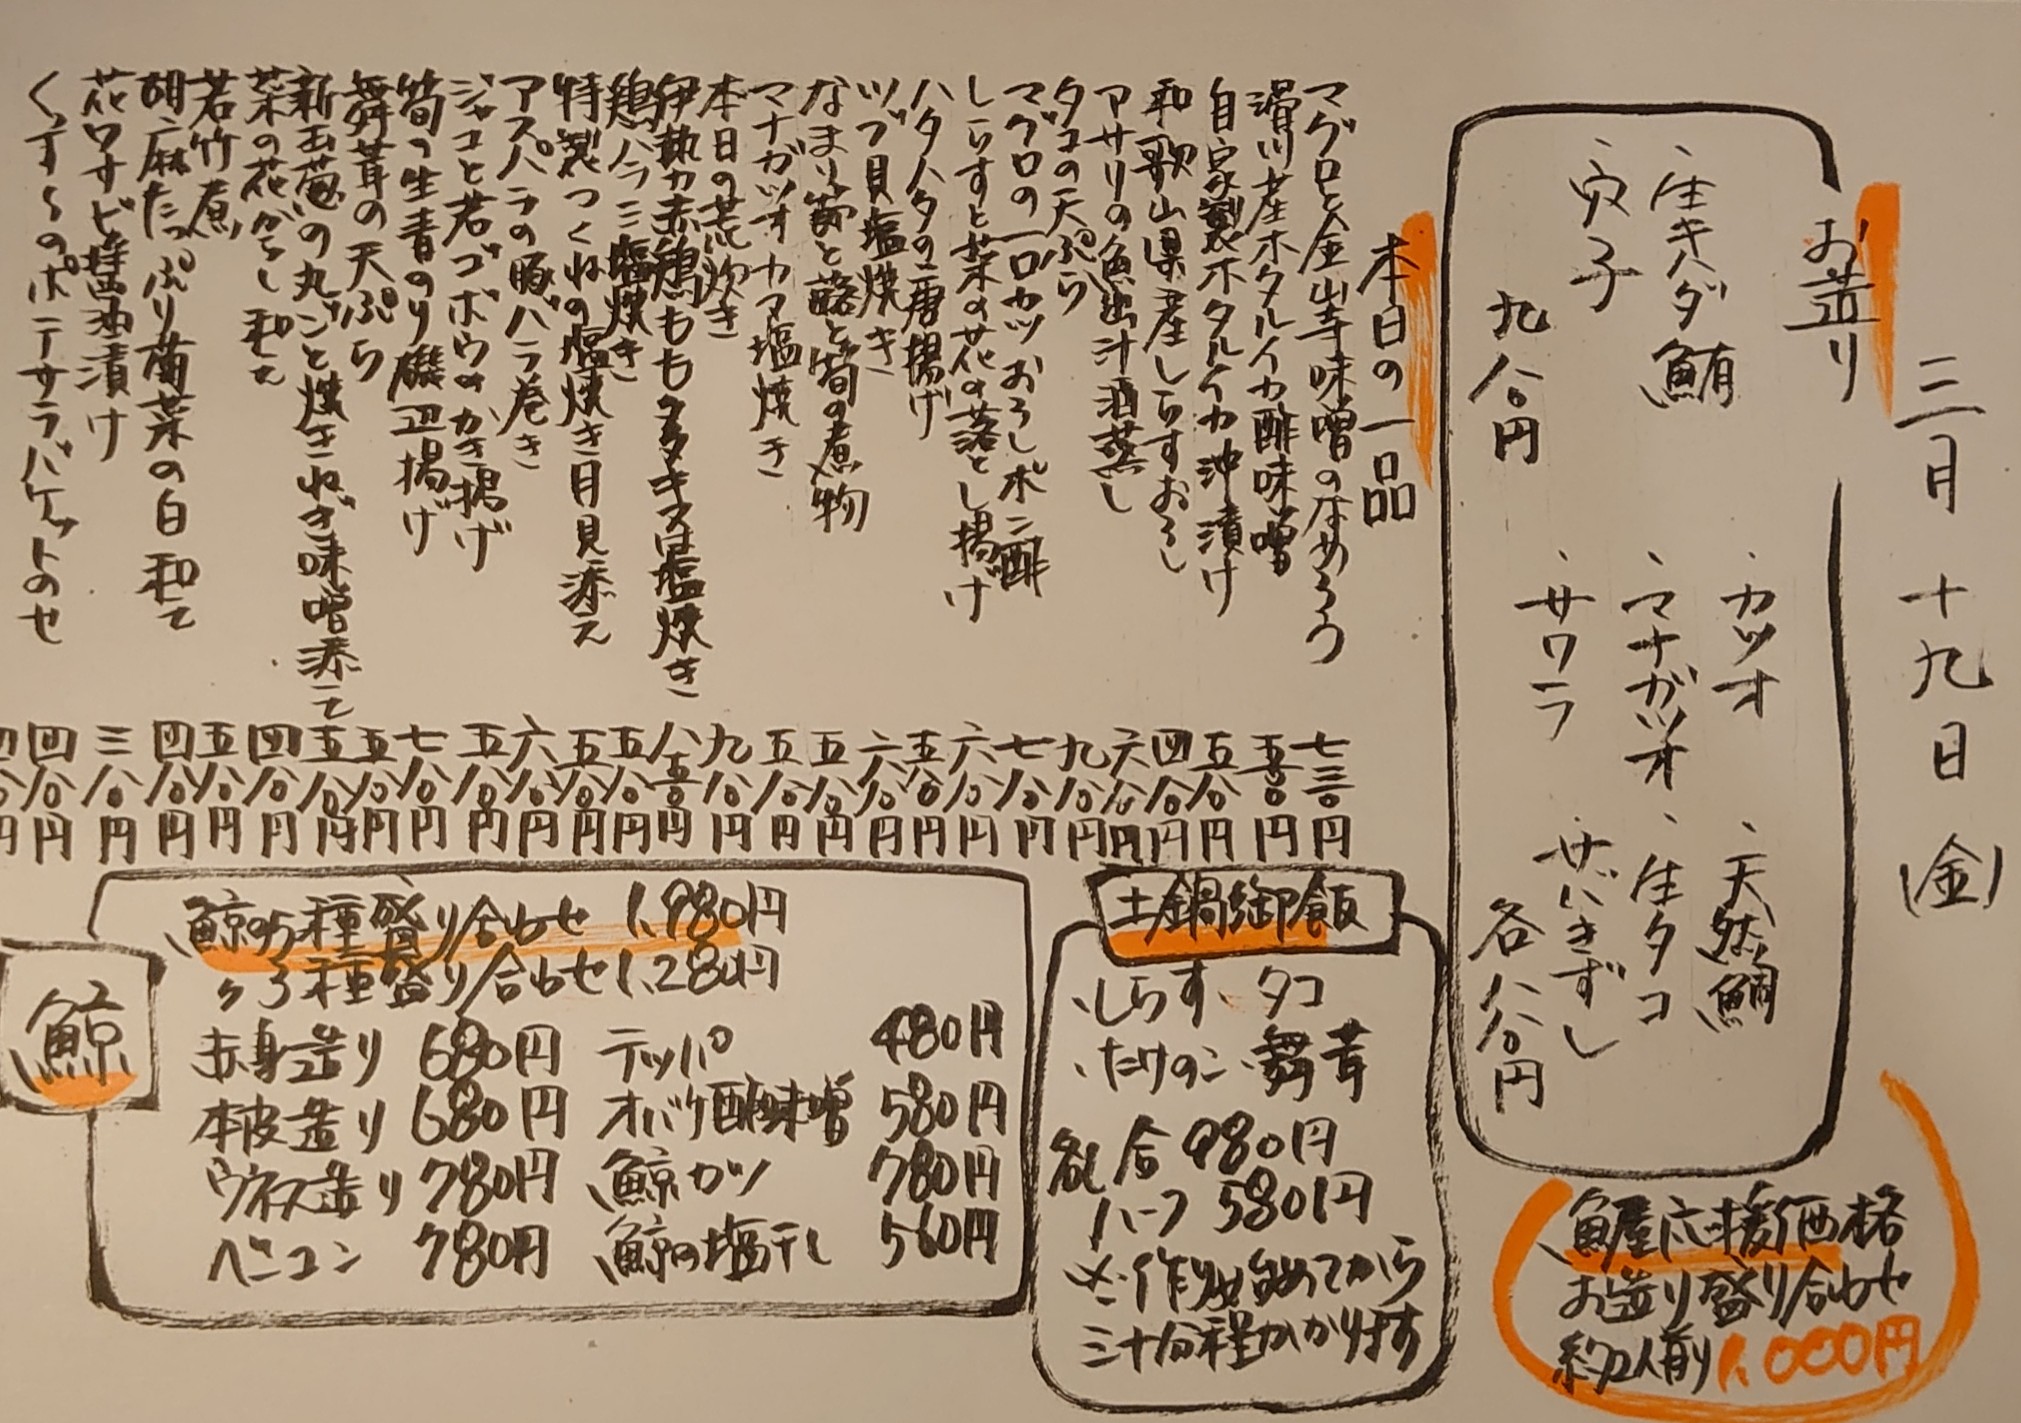 三月十九日(金)
お造り
、カツオ
、天然鯛
、生キハダ鮪
、マナガツオ
、生タコ
、穴子
、サワラ
、サバきずし
九八〇円
各八八〇円
魚屋応援価格
お造り盛り合わせ
約2人前 1,000円
本日の一品
マグロと金山寺味噌のなめろう 七三〇円
滑川産ホタルイカ酢味噌 五五〇円
自家製ホタルイカ沖漬け 五八〇円
和歌山県産しらすおろし 四八〇円
アサリの魚出汁酒蒸し 六八〇円
タコの天ぷら 九八〇円
マグロの一口カツおろしポン酢 七八〇円
しらすと菜の花の落とし揚げ 六八〇円
ハタハタの唐揚げ 五八〇円
ツブ貝塩焼き 六八〇円
なまり節と蕗と筍の煮物 五八〇円
マナガツオカマ塩焼き 五八〇円
本日の荒炊き 九八〇円
伊勢赤鶏もも タタキ又は塩焼き 八五〇円
鶏ハラミ塩焼き 五八〇円
特製つくねの塩焼き月見添え 五八〇円
アスパラの豚バラ巻き 六八〇円
ジャコと若ゴボウのかき揚げ 五八〇円
筍の生青のり磯辺揚げ 七八〇円
舞茸の天ぷら 五八〇円
新玉葱の丸ごと焼きねぎ味噌添えて 五八〇円
菜の花からし和え 四八〇円
若竹煮 五八〇円
胡麻たっぷり菊菜の白和え 四八〇円
花ワサビ醤油漬け 三八〇円
くっす〜のポテサラバケットのせ 四八〇円
土鍋御飯
、しらす、タコ
、たけのこ、舞茸
各しー合 980円
ハーフ 580円
※作り始めてから
三十分程かかります
鯨
鯨の5種盛り合わせ 1,980円
〃3種盛り合わせ 1,280円
赤身造り 680円 テッパ 480円
本皮造り 680円 オバケ酢味噌 580円
ウネス造り 780円 鯨カツ 780円
ベーコン 780円 鯨の塩干し 560円